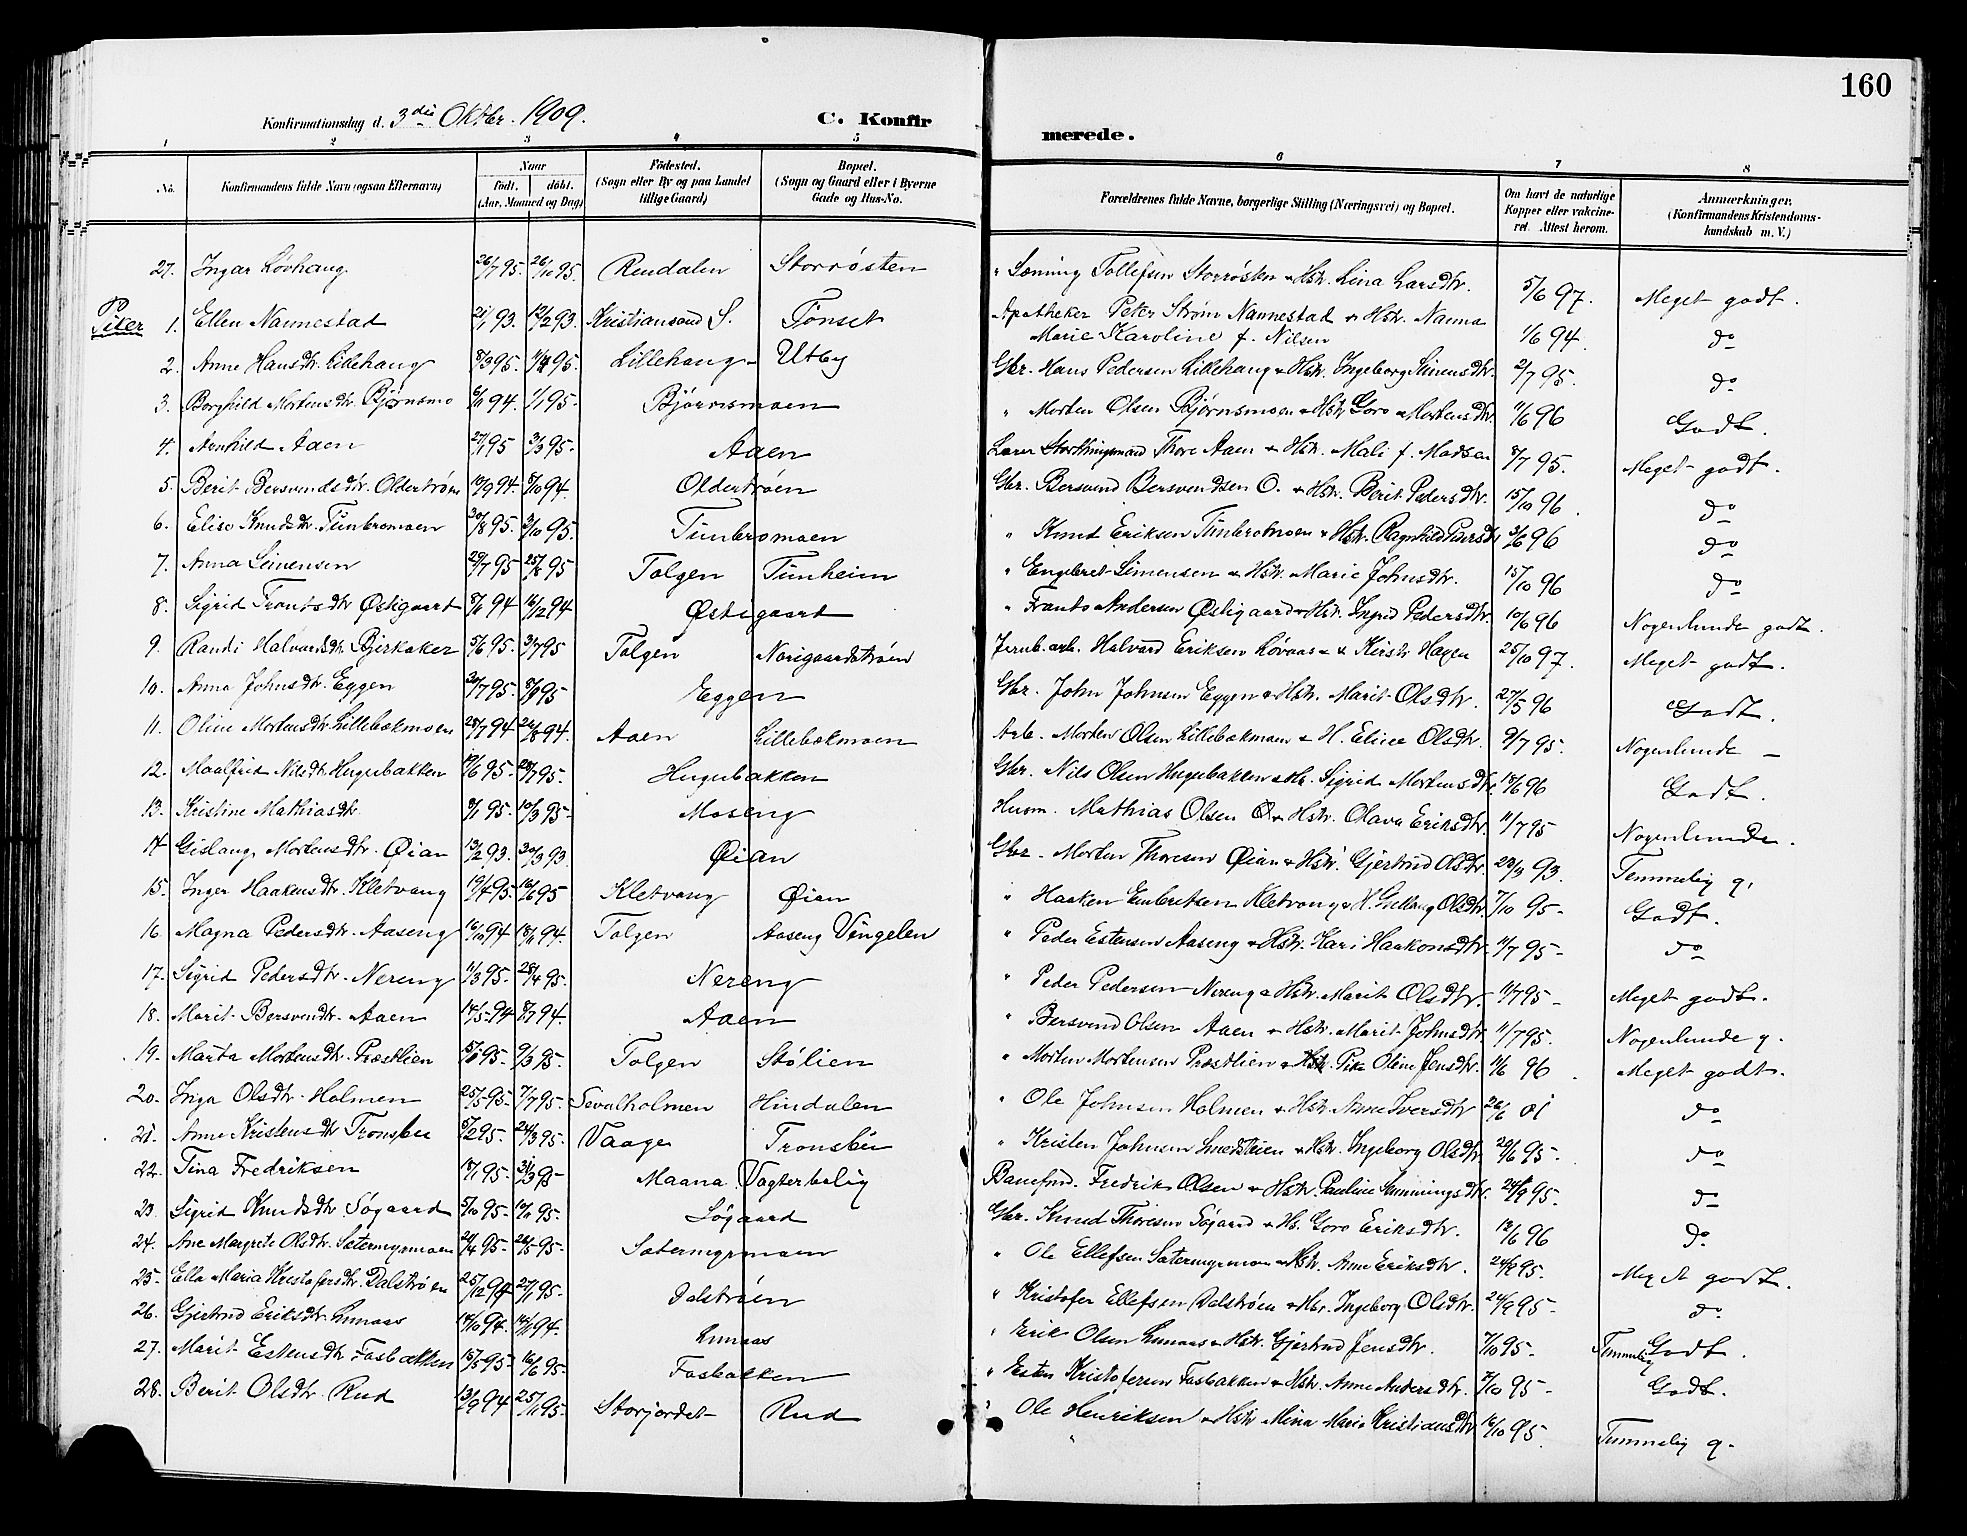 160
Konfirmationsdag d. 3die Oktbr. 1909.
C. Konfirmerede.
1 2 3 4 5 6 7 8
No. Konfirmandens fulde Navn (ogsaa Efternavn) Naar født. døbt. (Aar, Maaned og Dag) Fødested. (Sogn eller By og paa Landet tillige Gaard) Bopæl. (Sogn og Gaard eller i Byerne Gade og Hus-No. Forældrenes fulde Navne, borgerlige Stilling (Næringsvei) og Bopæl. Om havt de naturlige Kopper eller vakcineret. Attest herom. Anmærkninger. (Konfirmandens Kristendomskundskab m. V.)
27. Ingar Løvhaug 26/7 95. 26/10 95. Rendalen Storrøsten " Sæming Tollefsen Storrøsten & Hstr. Lina Larsdtr. 5/6 97. Meget godt.
Piker 1. Ellen Nannestad 21/1 93. 12/2 93. Kristiansand S. Tønset Apotheker Peter Strøm Nannestad & Hstr. Nanna
Marie Karoline f. Nilsen 1/6 94. do
2. Anne Hansdtr. Lillehaug 8/3 95. 95. Lillehaug Utby Gbr. Hans Pedersen Lillehaug & Hstr. Ingeborg Simensdtr. 2/7 95. do
3. Borghild Mortensdtr. Bjørnsmo 94. 1/1 95. Bjørnsmoen " Morten Olsen Bjørnsmoen & Hstr Goro Mortensdtr. 11/6 96 Godt.
4. Arnhild Aaen 27/1 95 31/3 95. Aaen Lærer Storthingsmand Thore Aaen & Hstr. Mali f. Madsen 8/7 95. Meget godt.
5. Berit Bersvendsdtr. Oldertrøen 19/9 94. 8/10 94. Oldertrøen Gbr. Bersvend Bersvendsen O. & Hstr. Berit Pedersdtr. 15/10 96. do
6. Elise Knudsdtr. Tunbromoen 30/8 95. 3/10 95. Tunbromoen " Knud Eriksen Tunbromoen & Hstr. Ragnhild Pedersdtr 3/6 96 do
7. Anna Simensen 29/7 95 25/8 95 Tolgen Tunheim " Engebret Simensen & Hstr. Marie Johnsdtr. 15/10 96 do
8. Sigrid Trontsdtr Østigaard 94 16/12 94 Østigaard " Tronts Andersen Østigaard & Hstr. Ingrid Pedersdtr. 10/6 96 Nogenlunde godt.
9. Randi Halvardsdtr. Birkaker 5/6 95. 95 Tolgen Norigaardstrøen Jernb. arb. Halvard Eriksen Løvaas & Kirstr Hagen 25/10 97. Meget godt.
10. Anna Johnsdtr. Eggen 7 95. 95 Eggen Gbr. John Johnsen Eggen & Hstr. Marit Olsdtr. 27/5 96 Godt.
11. Oline Mortensdtr. Lillebækmoen 28/7 94 26/8 94. Aaen Lillebækmoen Arb. Morten Olsen Lillebækmoen & H. Eline Olsdtr. 9/7 95. Nogenlunde —
12. Maalfrid Nilsdtr. Hugubakken 6 95. 28/7 95. Hugubakken Gbr. Nils Olsen Hugubakken & Hr. Sigrid Mortensdtr. 18/6 96 Godt.
13. Kristine Mathiasdtr. 8/1 95. 10/3 95. Moseng Husm. Mathias Olsen Ø & Hstr. Olava Eriksdtr. 11/7 95 Nogenlunde.
14 Gislaug Mortensdtr. Øian 13/2 93. 30/3 93 Øian Gbr. Morten Thoresen Øian & Hstr. Gjertrud Olsdtr. 28/3 93. Temmelig g.
15. Inger Haakensdtr. Kletvang 19/4 95. 16/6 95 Kletvang Øian " Haaken Embretsen Kletvang & H. Gullaug Olsdtr. 7/10 95- Godt.
16. Magna Pedersdtr. Aaseng 16/10 94 18/11 94. Tolgen Aaseng Vingelen " Peder Estensen Aaseng & Hstr. Kari Haakonsdtr. 11/7 95- do
17. Sigrid Pedersdtr. Nereng 11/3 95. 28/4 95. Nereng " Peder Pedersen Nereng & Hstr. Marit Olsdtr. 11/7 95- Meget godt.
18. Marit Bersvendtr. Aaen 14/5 94 8/7 94. Aaen " Bersvend Olsen Aaen & Hstr. Marit Johnsdtr. 11/7 95. Nogenlunde g.
19. Marta Mortensdtr. Præstlien 95. 9/3 95. Tolgen Stølien " Morten Mortensen Præstlien & Hstr. Oline Jensdtr. 11/6 96 Meget godt.
20. Inga Olsdtr. Holmen 25/5 95- 7/7 95. Sevalholmen Hindalen " Ole Johnsen Holmen & Hstr Anne Iversdtr 26/6 01 do
21. Anne Kristensdtr Tronsbu 5/2 95. 24/3 95. Vaage Tronsbu " Kristen Johnsen & Hstr. Ingeborg Olsdtr. 20/6 95. do
22. Tina Fredriksen 18/1 95. 31/3 95- Maana Vogterbolig Banefmd. Fredrik Olsen & Hstr. Pauline Semmingsdtr. 24/9 95. d—
23. Sigrid Knudsdtr. Søgaard 5/10 95- 95. Søgaard Gbr. Knud Thoresen Søgaard & Hs. Goro Eriksdtr. 12/6 96 do
24. Ane Margrete Olsdtr. Sætermyrmoen 21/4 95- 26/5 95- Sætermyrmoen " Ole Ellefsen Sætermyrmoen & Hstr. Anne Eriksdtr. 24/9 95. Meget godt.
25. Ella Maria Kristofersdtr. Dalstrøen 25/12 94 27/1 95. Dalstrøen " Kristofer Ellefsen Dalstrøen & Hr. Ingeborg Olsdtr. 24/9 95- do
26. Gjertrud Eriksdtr. Lunaas 14/10 94. 14/11 94. Lunaas " Erik Olsen Lunaas & Hstr. Gjertrud Jensdtr. 7/10 95- Temmelig Godt.
27. Marit Estensdtr Fosbakken 15/5 95- 16/6 95. Fosbakken " Esten Kristofersen Fosbakken & Hstr. Anne Andersdtr. 7/10 95- Godt.
28. Berit Olsdtr. Rud 13/9 94 25/11 95. Storjordet Rud " Ole Henriksen & Hstr Mina Marie Kristiansdtr 16/10 95. Temmelig g.